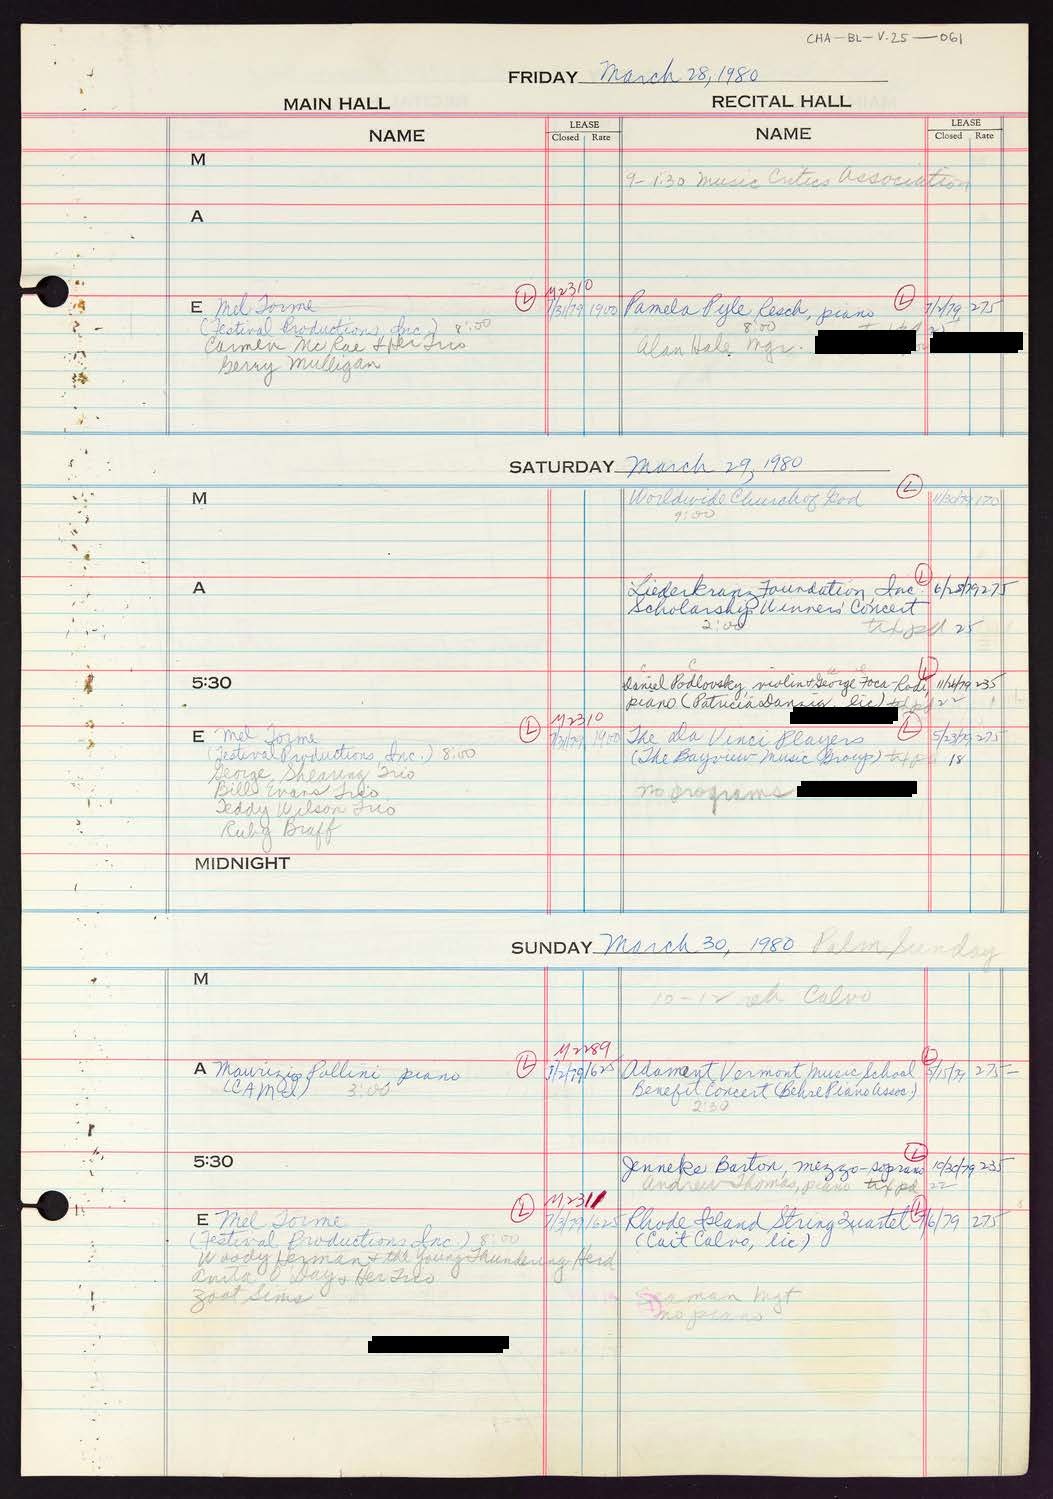 CHA-BL-V.25-061
FRIDAY March 28, 1980
MAIN HALL RECITAL HALL
NAME LEASE Closed Rate NAME LEASE Closed Rate
M
9-1:30 Music Critics Association
A
M2310
E Mel Torme L 7/3/79 1900
(Festival Productions, Inc.) 8:00
Carmen McRae & Her Trio
Gerry Mulligan
Pamela Pyle Resch, piano L 7/2/79 275
8:00
Alan Hale Mgr.
SATURDAY March 29, 1980
M
Worldwide Church of God L 11/30/79 170
9:00
A
Liederkranz Foundation, Inc. L 6/28/79 275
Scholarship Winners' Concert
2:00 tx pd 25
5:30
Daniel Podlovsky, violin & George Foca-Rodi, L 235
piano (Patricia Danzig, lic) 22
M2310
E Mel Torme L 7/3/79 1900
(Festival Productions Inc.) 8:00
George Shearing Trio
Bill Evans Trio
Teddy Wilson Trio
Ruby Braff
The da Vinci Players L 5/23/79 275
(The Bayview Music Group) tx pd 18
no programs
MIDNIGHT
SUNDAY March 30, 1980 Palm Sunday
M
10-12 reh Calvo
A
M2289
Maurizio Pollini piano L 1625
(CAMI) 3:00
Adamant Vermont Music School L 5/15/79 275-
Benefit Concert (Behre Piano Assoc)
2:30
5:30
Jenneke Barton, mezzo-soprano L 10/30/79 235
Andrew Thomas, piano tx pd 22
M2311
E Mel Torme L 7/3/79 1625
(Festival Productions Inc.) 8:00
Woody Herman & the Young Thundering Herd
Anita O'Day & Her Trio
Zoot Sims
Rhode Island String Quartet L 275
(Cait Calvo, lic)
Mgt
no piano